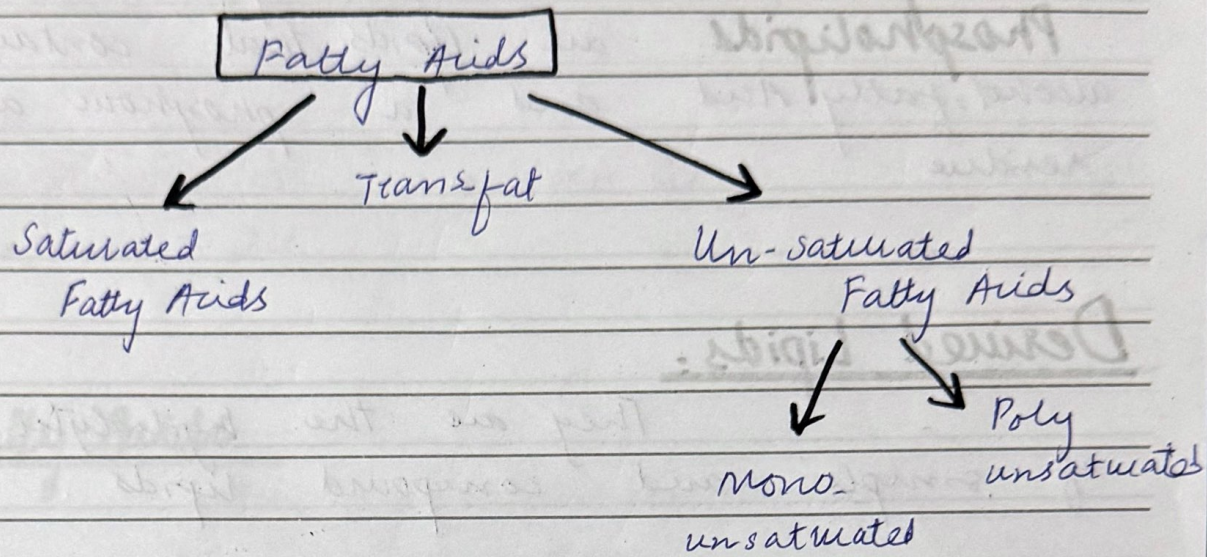 Fatty Acids
Trans fat
Saturated
Fatty Acids
Un-saturated
Fatty Acids
Mono-
unsaturated
Poly
unsaturated